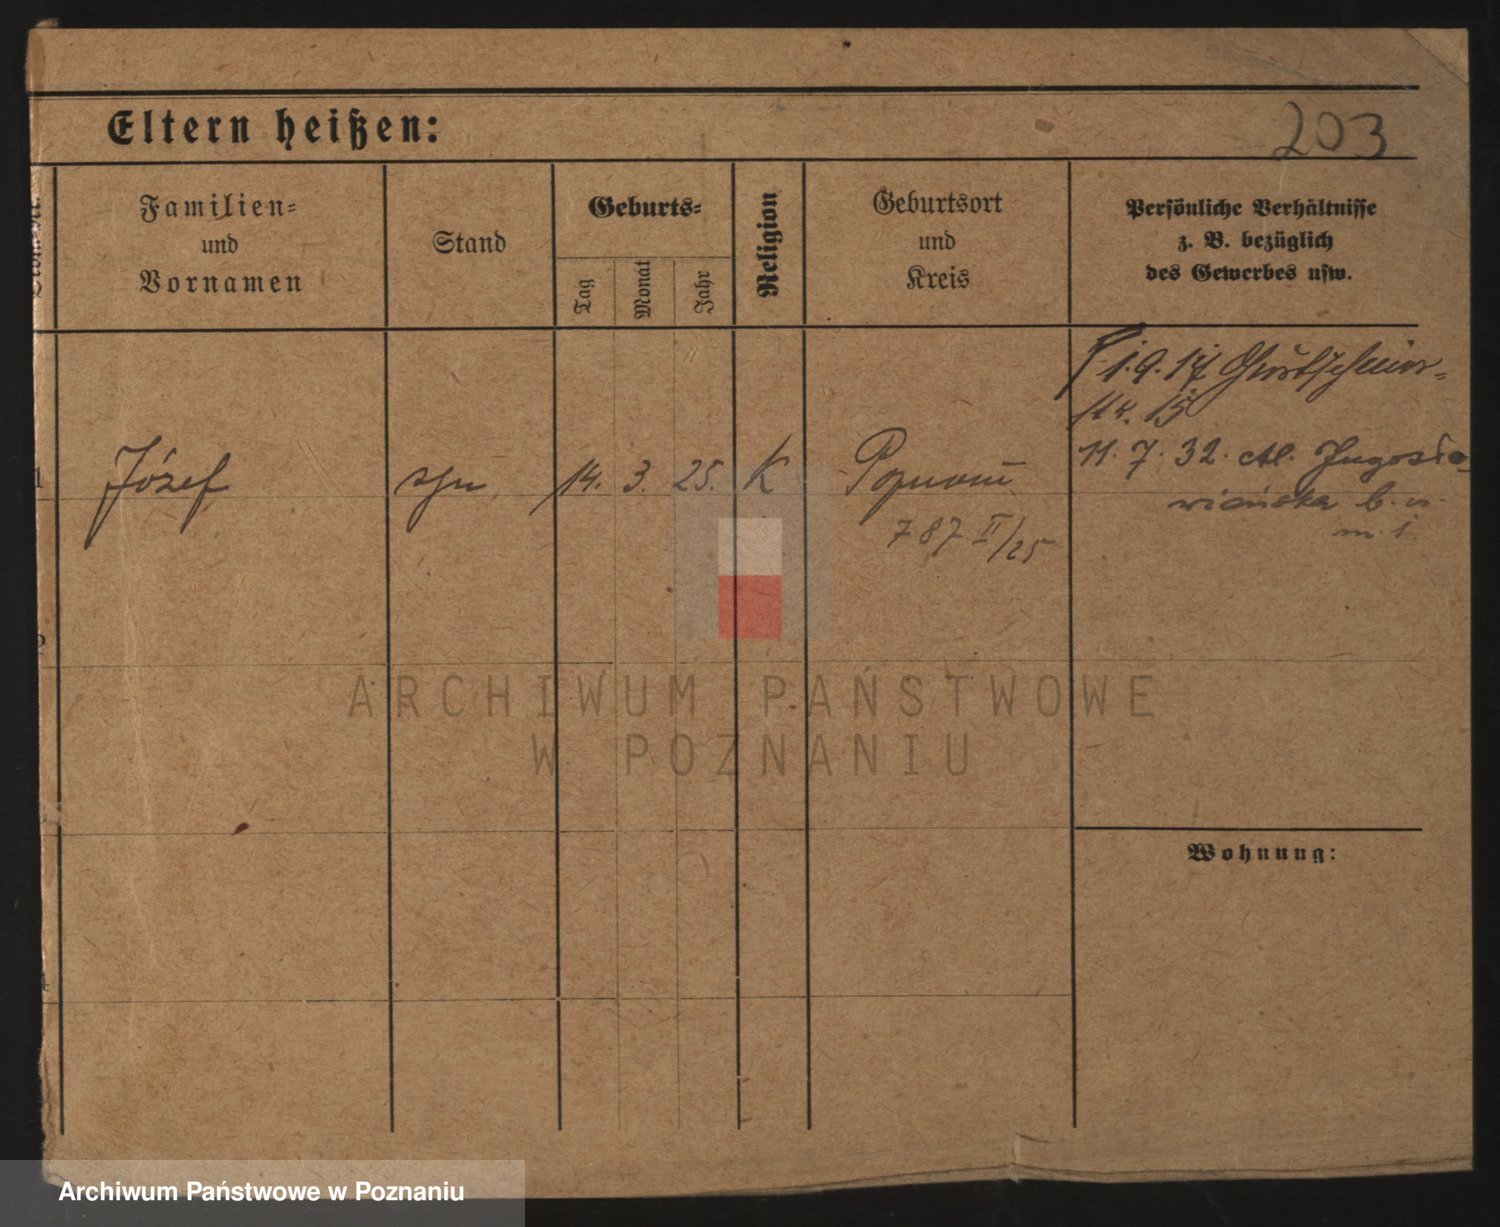 Eltern heißen:
203
Familien=
und
Vornamen
Stand
Geburts=
Tag
Monat
Jahr
Religion
Geburtsort
und
Kreis
Persönliche Verhältnisse
z. B. bezüglich
des Gewerbes usw.
1.9.17
15
1 Józef syn 14. 3. 25. K Poznań
787 II/25
11. 7. 32. Al. Jugosło
wiańska
m. 1
ARCHIWUM PAŃSTWOWE
W POZNANIU
Wohnung:
Archiwum Państwowe w Poznaniu